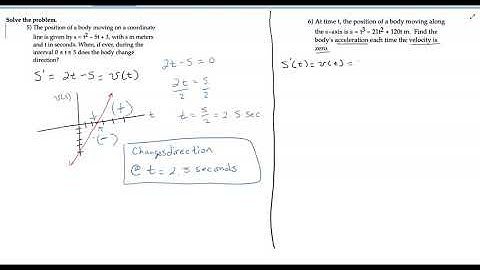 Solve the problem.
5) The position of a body moving on a coordinate
line is given by s = t² - 5t + 3, with s in meters
and t in seconds. When, if ever, during the
interval 0 ≤ t ≤ 5 does the body change
direction?
S' = 2t - 5 = v(t)
2t - 5 = 0
2t/2 = 5/2
t = 5/2 = 2.5 sec
v(t)
(+)
t
(-)
Changes direction
@ t = 2.5 seconds
6) At time t, the position of a body moving along
the s-axis is s = t³ - 21t² + 120t m. Find the
body's acceleration each time the velocity is
zero.
S'(t) = v(t) =